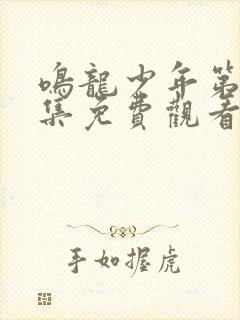 鳴龍少年第
集免費觀看
手如握虎